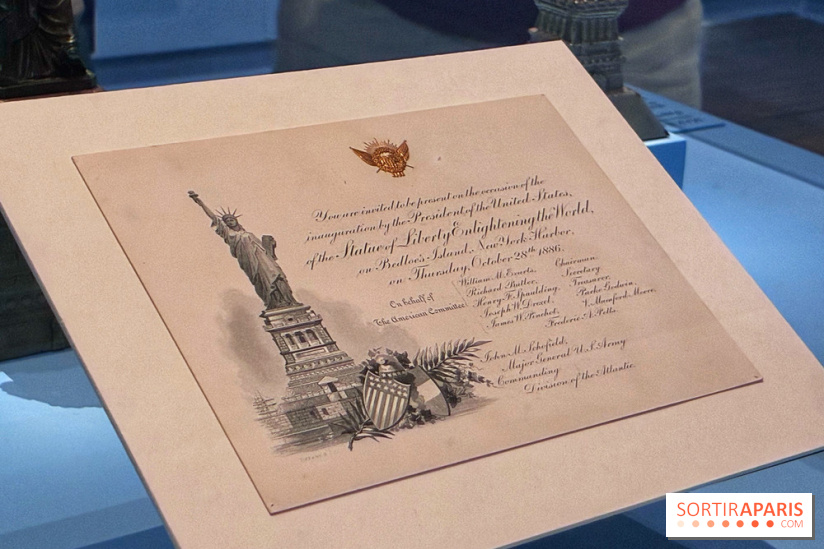 You are invited to be present on the occasion of the
inauguration by the President of the United States,
of the Statue of Liberty Enlightening the World,
on Bedloe's Island, New York Harbor,
on Thursday, October 28th 1886.
On behalf of
The American Committee
William M. Evarts, Chairman.
Richard Butler, Secretary.
Henry F. Spaulding, Treasurer.
Joseph W. Drexel, Parke Godwin,
James W. Pinchot, V. Mumford Moore,
Frederic A. Potts.
John M. Schofield,
Major General U.S. Army
Commanding
Division of the Atlantic.
SORTIRAPARIS
.COM